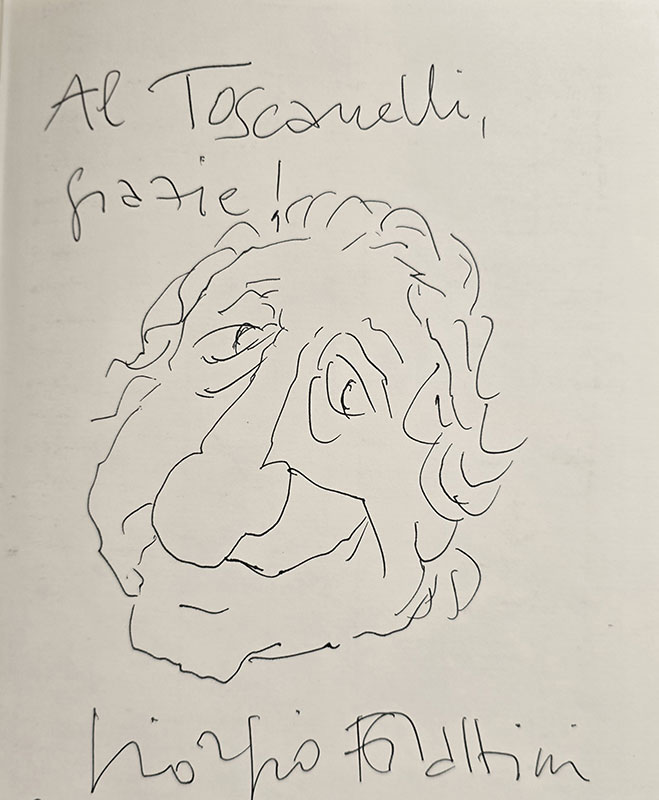 Al Toscanelli,
grazie!
Giorgio Forattini